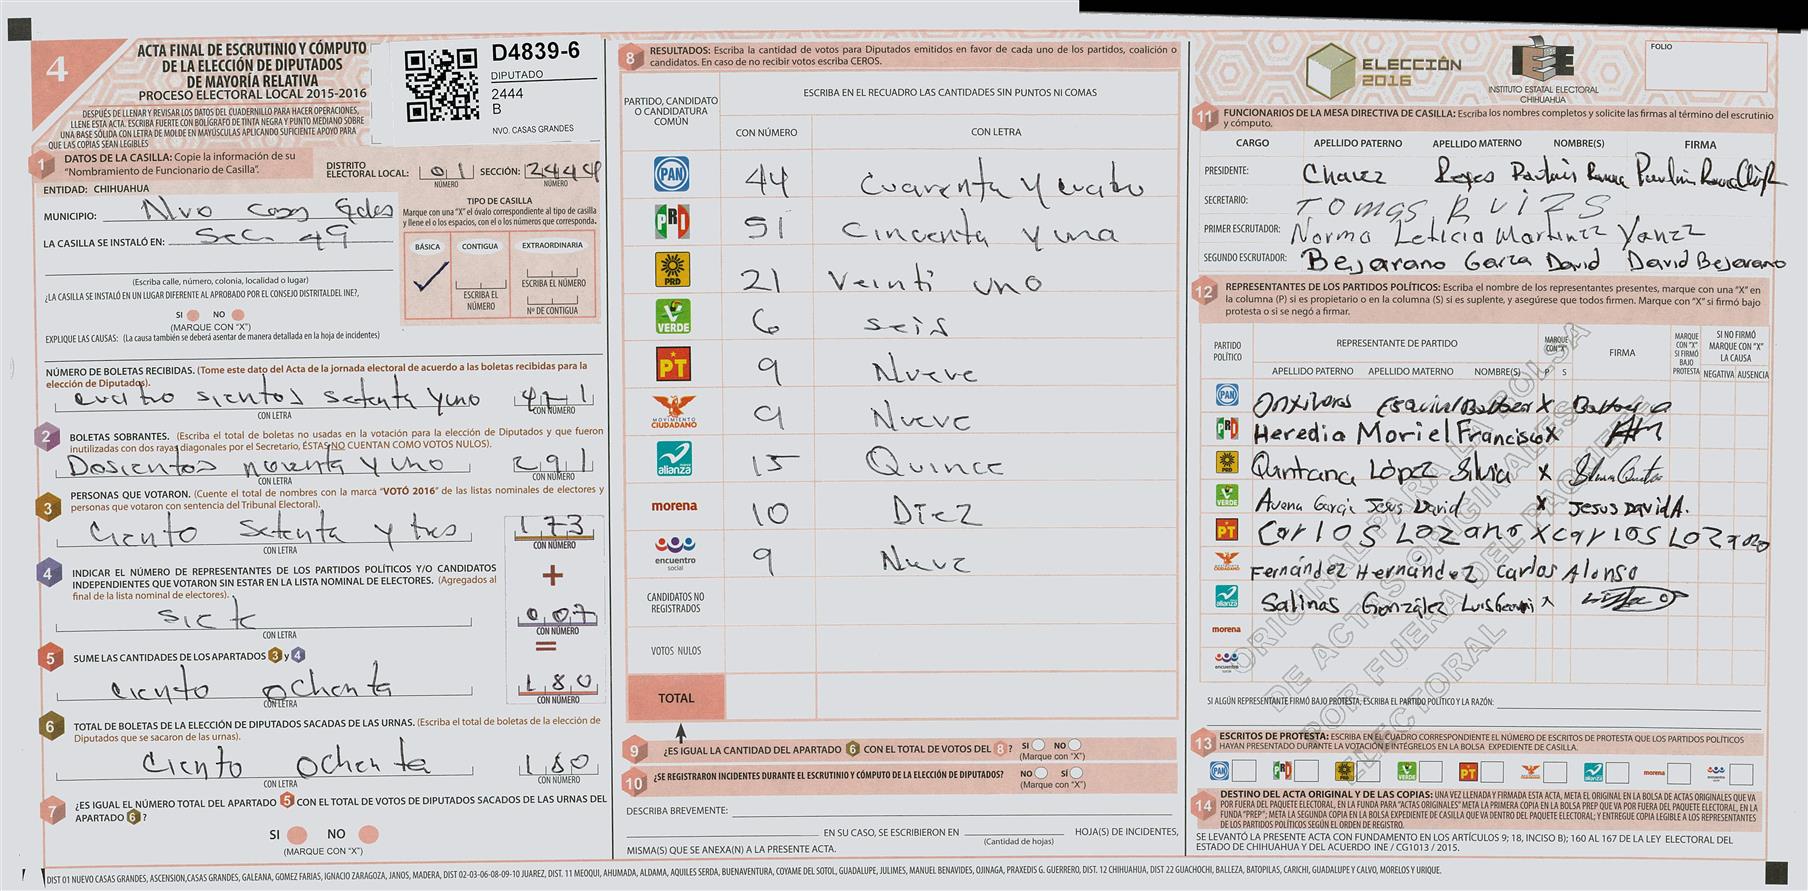 4
ACTA FINAL DE ESCRUTINIO Y CÓMPUTO
DE LA ELECCIÓN DE DIPUTADOS
DE MAYORÍA RELATIVA
PROCESO ELECTORAL LOCAL 2015-2016
DESPUÉS DE LLENAR Y REVISAR LOS DATOS DEL CUADERNILLO PARA HACER OPERACIONES,
LLENE ESTA ACTA. ESCRIBA FUERTE CON BOLÍGRAFO DE TINTA NEGRA Y PUNTO MEDIANO SOBRE
UNA BASE SÓLIDA CON LETRA DE MOLDE EN MAYÚSCULAS APLICANDO SUFICIENTE APOYO PARA
QUE LAS COPIAS SEAN LEGIBLES
D4839-6
DIPUTADO
2444
B
NVO. CASAS GRANDES
1 DATOS DE LA CASILLA: Copie la información de su
"Nombramiento de Funcionario de Casilla".
DISTRITO
ELECTORAL LOCAL: 01 SECCIÓN: 2444
NÚMERO NÚMERO
ENTIDAD: CHIHUAHUA
MUNICIPIO: Nvo casas Gdes
LA CASILLA SE INSTALÓ EN: Sec 49
(Escriba calle, número, colonia, localidad o lugar)
¿LA CASILLA SE INSTALÓ EN UN LUGAR DIFERENTE AL APROBADO POR EL CONSEJO DISTRITALDEL INE?,
SI NO
(MARQUE CON "X")
EXPLIQUE LAS CAUSAS: (La causa también se deberá asentar de manera detallada en la hoja de incidentes)
TIPO DE CASILLA
Marque con una "X" el óvalo correspondiente al tipo de casilla
y llene el o los espacios, con el o los números que corresponda.
BÁSICA CONTIGUA EXTRAORDINARIA
ESCRIBA EL NÚMERO
ESCRIBA EL
NÚMERO
Nº DE CONTIGUA
NÚMERO DE BOLETAS RECIBIDAS. (Tome este dato del Acta de la jornada electoral de acuerdo a las boletas recibidas para la
elección de Diputados).
cuatro sientos setenta y uno 471
CON LETRA CON NÚMERO
2 BOLETAS SOBRANTES. (Escriba el total de boletas no usadas en la votación para la elección de Diputados y que fueron
inutilizadas con dos rayas diagonales por el Secretario, ÉSTAS NO CUENTAN COMO VOTOS NULOS).
Dosientos noventa y uno 291
CON LETRA CON NÚMERO
3 PERSONAS QUE VOTARON. (Cuente el total de nombres con la marca "VOTÓ 2016" de las listas nominales de electores y
personas que votaron con sentencia del Tribunal Electoral).
Ciento setenta y tres 173
CON LETRA CON NÚMERO
+
4 INDICAR EL NÚMERO DE REPRESENTANTES DE LOS PARTIDOS POLÍTICOS Y/O CANDIDATOS
INDEPENDIENTES QUE VOTARON SIN ESTAR EN LA LISTA NOMINAL DE ELECTORES. (Agregados al
final de la lista nominal de electores).
siete 007
CON LETRA CON NÚMERO
=
5 SUME LAS CANTIDADES DE LOS APARTADOS 3 y 4
ciento ochenta 180
CON LETRA CON NÚMERO
6 TOTAL DE BOLETAS DE LA ELECCIÓN DE DIPUTADOS SACADAS DE LAS URNAS. (Escriba el total de boletas de la elección de
Diputados que se sacaron de las urnas).
ciento ochenta 180
CON LETRA CON NÚMERO
7 ¿ES IGUAL EL NÚMERO TOTAL DEL APARTADO 5 CON EL TOTAL DE VOTOS DE DIPUTADOS SACADOS DE LAS URNAS DEL
APARTADO 6?
SI NO
(MARQUE CON "X")
8 RESULTADOS: Escriba la cantidad de votos para Diputados emitidos en favor de cada uno de los partidos, coalición o
candidatos. En caso de no recibir votos escriba CEROS.
PARTIDO, CANDIDATO
O CANDIDATURA
COMÚN
ESCRIBA EN EL RECUADRO LAS CANTIDADES SIN PUNTOS NI COMAS
CON NÚMERO CON LETRA
PAN 44 Cuarenta y cuatro
PRD 51 Cincuenta y una
PRD 21 Veinti uno
VERDE 6 seis
PT 9 Nueve
MOVIMIENTO CIUDADANO 9 Nueve
alianza 15 Quince
morena 10 Diez
encuentro social 9 Nueve
CANDIDATOS NO
REGISTRADOS
VOTOS NULOS
TOTAL
9 ¿ES IGUAL LA CANTIDAD DEL APARTADO 6 CON EL TOTAL DE VOTOS DEL 8? SI NO
(Marque con "X")
10 ¿SE REGISTRARON INCIDENTES DURANTE EL ESCRUTINIO Y CÓMPUTO DE LA ELECCIÓN DE DIPUTADOS? NO SÍ
(Marque con "X")
DESCRIBA BREVEMENTE:
EN SU CASO, SE ESCRIBIERON EN HOJA(S) DE INCIDENTES,
(Cantidad de hojas)
MISMA(S) QUE SE ANEXA(N) A LA PRESENTE ACTA.
ELECCIÓN
2016
IEE
INSTITUTO ESTATAL ELECTORAL
CHIHUAHUA
FOLIO
11 FUNCIONARIOS DE LA MESA DIRECTIVA DE CASILLA: Escriba los nombres completos y solicite las firmas al término del escrutinio
y cómputo.
CARGO APELLIDO PATERNO APELLIDO MATERNO NOMBRE(S) FIRMA
PRESIDENTE: Chavez Reyes
SECRETARIO: TOMAS RUIZS
PRIMER ESCRUTADOR: Norma Leticia Martinez Yanez
SEGUNDO ESCRUTADOR: Bejarano Garza David David Bejarano
12 REPRESENTANTES DE LOS PARTIDOS POLÍTICOS: Escriba el nombre de los representantes presentes, marque con una "X" en
la columna (P) si es propietario o en la columna (S) si es suplente, y asegúrese que todos firmen. Marque con "X" si firmó bajo
protesta o si se negó a firmar.
PARTIDO
POLÍTICO
REPRESENTANTE DE PARTIDO
APELLIDO PATERNO APELLIDO MATERNO NOMBRE(S)
MARQUE
CON "X"
P S
FIRMA
MARQUE
CON "X"
SI FIRMÓ
BAJO
PROTESTA
SI NO FIRMÓ
MARQUE CON "X"
LA CAUSA
NEGATIVA AUSENCIA
PAN X
Heredia Moriel Francisco X
Quintana López Silvia X
Garcia Jesus David X JESUS DAVID A.
PT Carlos Lozano X carlos Lozano
Fernández Hernández Carlos Alonso
alianza Salinas González X
morena
encuentro social
ORIGINAL PARA LA BOLSA
DE ACTAS ORIGINALES
POR FUERA DEL PAQUETE
ELECTORAL
SI ALGÚN REPRESENTANTE FIRMÓ BAJO PROTESTA, ESCRIBA EL PARTIDO POLÍTICO Y LA RAZÓN:
13 ESCRITOS DE PROTESTA: ESCRIBA EN EL CUADRO CORRESPONDIENTE EL NÚMERO DE ESCRITOS DE PROTESTA QUE LOS PARTIDOS POLÍTICOS
HAYAN PRESENTADO DURANTE LA VOTACIÓN E INTÉGRELOS EN LA BOLSA EXPEDIENTE DE CASILLA.
14 DESTINO DEL ACTA ORIGINAL Y DE LAS COPIAS: UNA VEZ LLENADA Y FIRMADA ESTA ACTA, META EL ORIGINAL EN LA BOLSA DE ACTAS ORIGINALES QUE VA
POR FUERA DEL PAQUETE ELECTORAL, EN LA FUNDA PARA "ACTAS ORIGINALES" META LA PRIMERA COPIA EN LA BOLSA PREP QUE VA POR FUERA DEL PAQUETE ELECTORAL, EN LA
FUNDA "PREP"; META LA SEGUNDA COPIA EN LA BOLSA EXPEDIENTE DE CASILLA QUE VA DENTRO DEL PAQUETE ELECTORAL; Y ENTREGUE COPIA LEGIBLE A LOS REPRESENTANTES
DE LOS PARTIDOS POLÍTICOS SEGÚN EL ORDEN DE REGISTRO.
SE LEVANTÓ LA PRESENTE ACTA CON FUNDAMENTO EN LOS ARTÍCULOS 9; 18, INCISO B); 160 AL 167 DE LA LEY ELECTORAL DEL
ESTADO DE CHIHUAHUA Y DEL ACUERDO INE / CG1013 / 2015.
DIST 01 NUEVO CASAS GRANDES, ASCENSION,CASAS GRANDES, GALEANA, GOMEZ FARIAS, IGNACIO ZARAGOZA, JANOS, MADERA, DIST 02-03-06-08-09-10 JUAREZ, DIST. 11 MEOQUI, AHUMADA, ALDAMA, AQUILES SERDA, BUENAVENTURA, COYAME DEL SOTOL, GUADALUPE, JULIMES, MANUEL BENAVIDES, OJINAGA, PRAXEDIS G. GUERRERO, DIST. 12 CHIHUAHUA, DIST 22 GUACHOCHI, BALLEZA, BATOPILAS, CARICHI, GUADALUPE Y CALVO, MORELOS Y URIQUE.